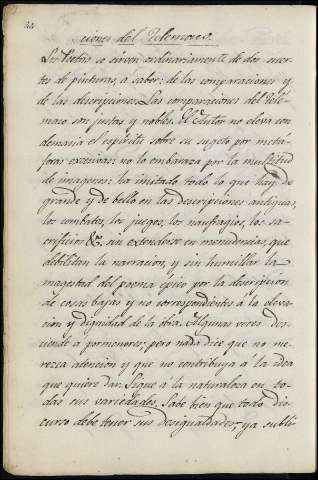 ciones del Telemaco.
Los Poetas se sirven ordinariamente de dos suer-
tes de pinturas, a saber: de las comparaciones y
de las descripciones. Las comparaciones del Telé-
maco son justas y nobles. El Autor no eleva con
demasia el espíritu sobre su sugeto por metá-
foras excesivas: no lo embaraza por la multitud
de imagenes: ha imitado todo lo que hay de
grande y de bello en las descripciones antiguas,
los combates, los juegos, los naufragios, los sa-
crificios &c. sin extenderse en menudencias, que
debilitan la narracion, y sin humillar la
magestad del poema epico por la descripcion
de cosas bajas y no correspondientes á la eleva-
cion y dignidad de la obra. Algunas veces des-
ciende á pormenores; pero nada dice que no me-
rezca atencion y que no contribuya á la idea
que quiere dar. Sigue á la naturaleza en to-
das sus variedades. Sabe bien que todo dis-
curso debe tener sus desigualdades; ya subli-